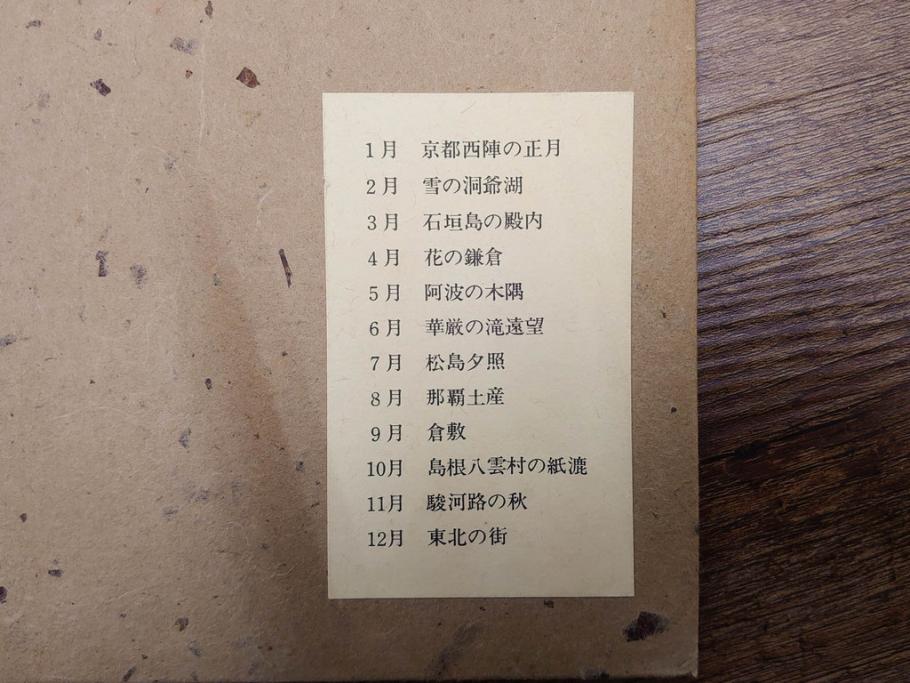 1月 京都西陣の正月
2月 雪の洞爺湖
3月 石垣島の殿内
4月 花の鎌倉
5月 阿波の木隅
6月 華厳の滝遠望
7月 松島夕照
8月 那覇土産
9月 倉敷
10月 島根八雲村の紙漉
11月 駿河路の秋
12月 東北の街